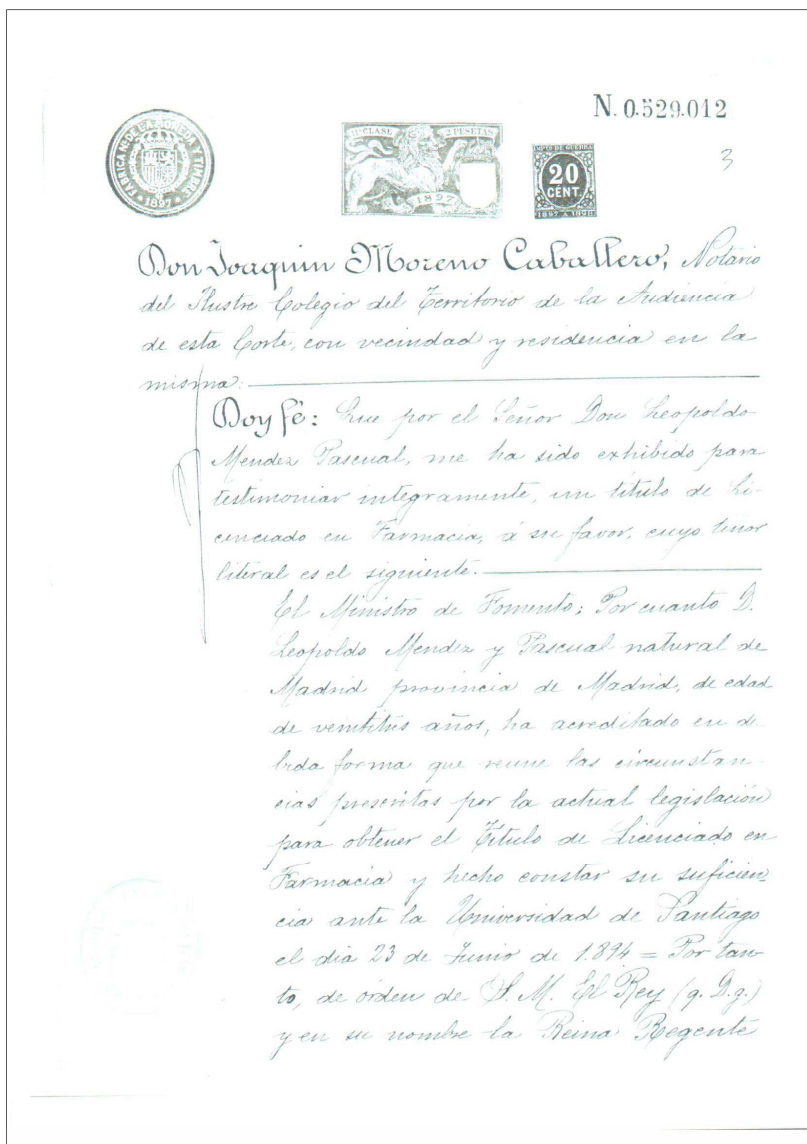 N. 0.529.012
3
FABRICA NACIONAL DE LA MONEDA Y TIMBRE
* 1897 *
11ª CLASE 2 PESETAS
1897
IMPTO DE GUERRA
20
CENT.
1897 A 1898
Don Joaquin Moreno Caballero, Notario
del Ilustre Colegio del Territorio de la Audiencia
de esta Corte, con vecindad y residencia en la
misma.
Doy fé: Que por el Señor Don Leopoldo
Mendez Pascual, me ha sido exhibido para
testimoniar integramente, un titulo de Li-
cenciado en Farmacia, á su favor, cuyo tenor
literal es el siguiente.
El Ministro de Fomento: Por cuanto D.
Leopoldo Mendez y Pascual natural de
Madrid provincia de Madrid, de edad
de veintitrés años, ha acreditado en de
bida forma que reune las circunstan-
cias prescritas por la actual legislación
para obtener el Título de Licenciado en
Farmacia y hecho constar su suficien-
cia ante la Universidad de Santiago
el dia 23 de Junio de 1.894 = Por tan-
to, de orden de S. M. El Rey (q. D. g.)
y en su nombre la Reina Regente